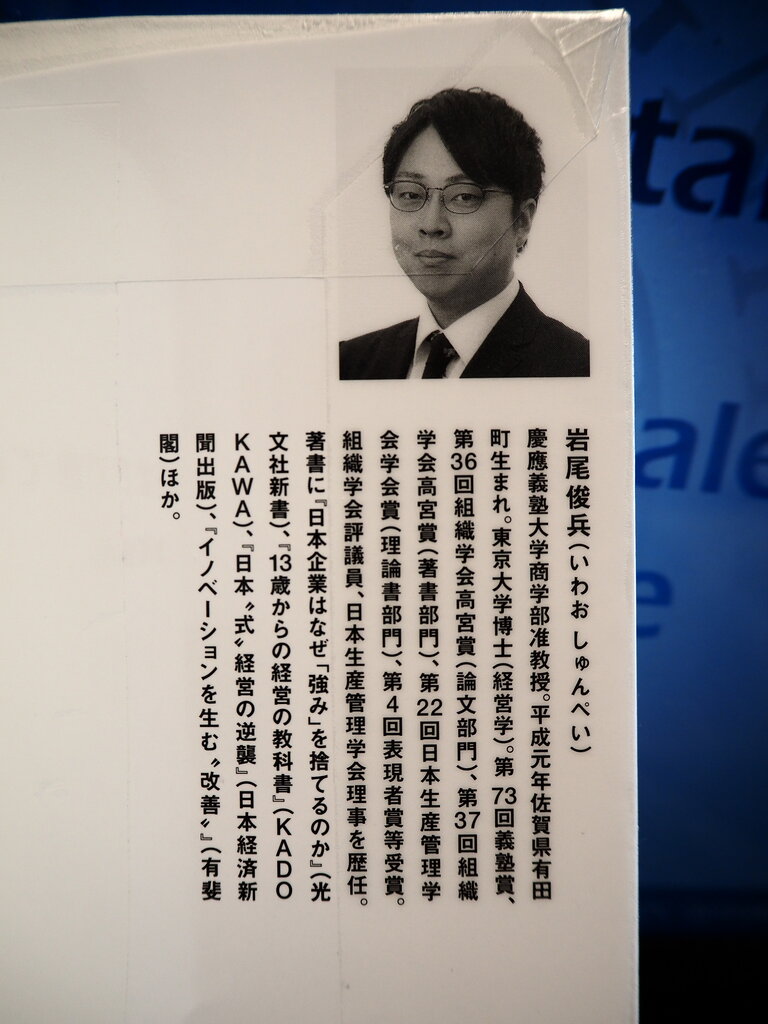 岩尾俊兵（いわお しゅんぺい）
慶應義塾大学商学部准教授。平成元年佐賀県有田
町生まれ。東京大学博士（経営学）。第73回義塾賞、
第36回組織学会高宮賞（論文部門）、第37回組織
学会高宮賞（著書部門）、第22回日本生産管理学
会学会賞（理論書部門）、第4回表現者賞等受賞。
組織学会評議員、日本生産管理学会理事を歴任。
著書に『日本企業はなぜ「強み」を捨てるのか』（光
文社新書）、『13歳からの経営の教科書』（KADO
KAWA）、『日本〝式〟経営の逆襲』（日本経済新
聞出版）、『イノベーションを生む〝改善〟』（有斐
閣）ほか。
ta
ale
e